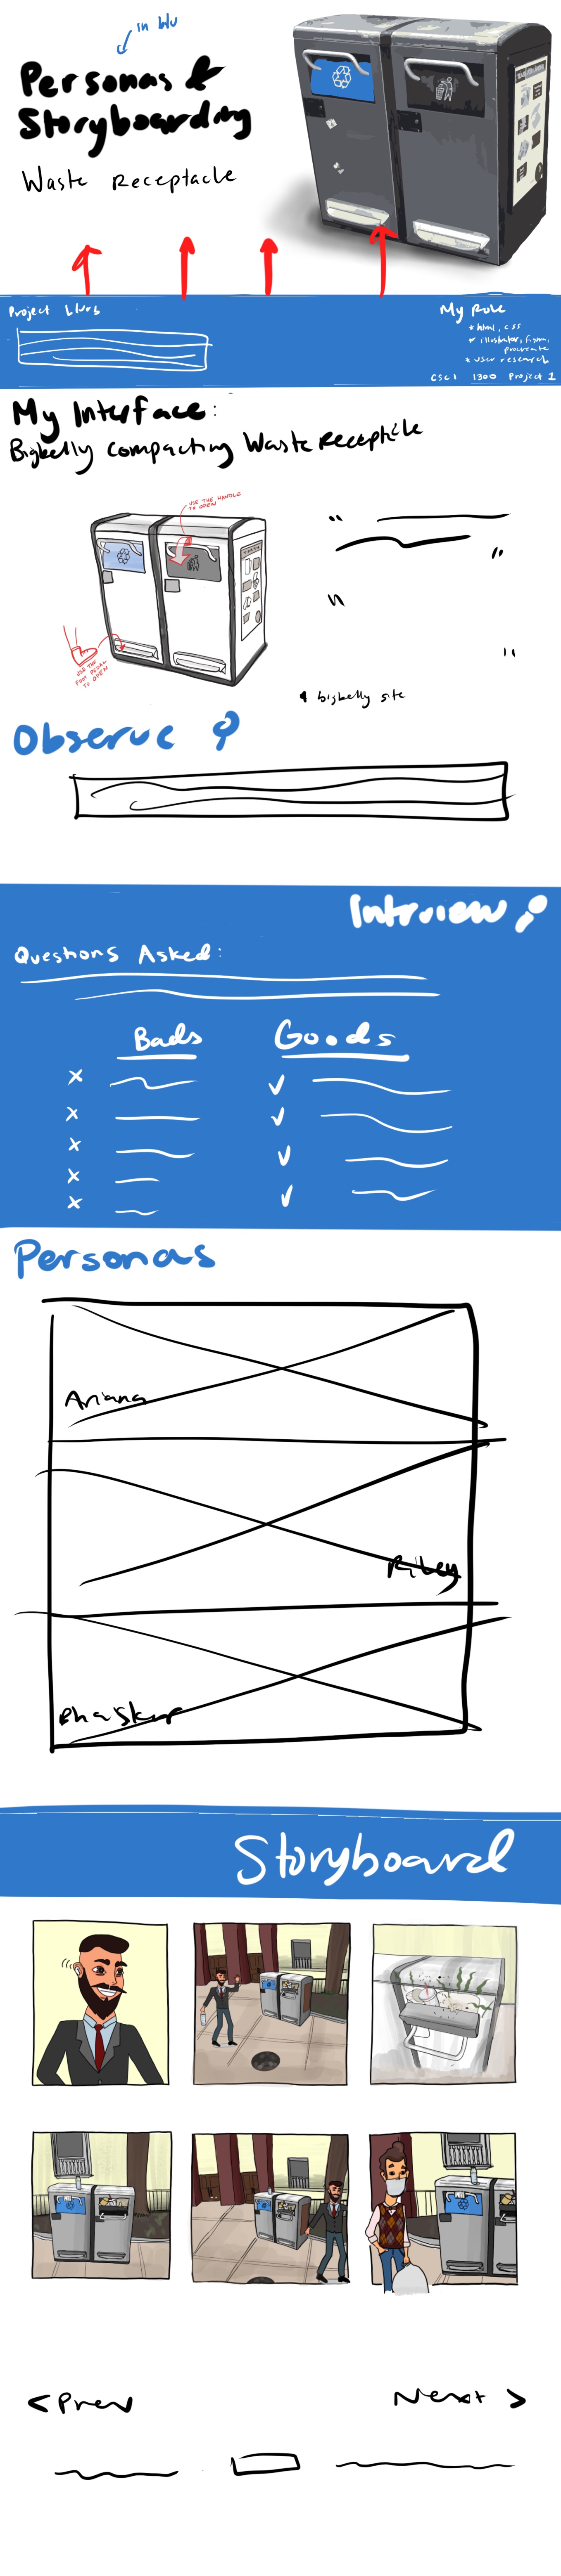 in blu
Personas &
Storyboarding
Waste Receptacle
Project blurb
My Role
* html, css
* illustrator, figma,
procreate
* user research
CSCI 1300 Project 1
My Interface:
Bigbelly Compacting Waste Receptacle
USE THE HANDLE
TO OPEN
USE THE
FOOT PEDAL
TO OPEN
bigbelly site
Observe
Interview
Questions Asked:
Bads
Goods
Personas
Ariana
Riley
Bhaskar
Storyboard
< Prev
Next >